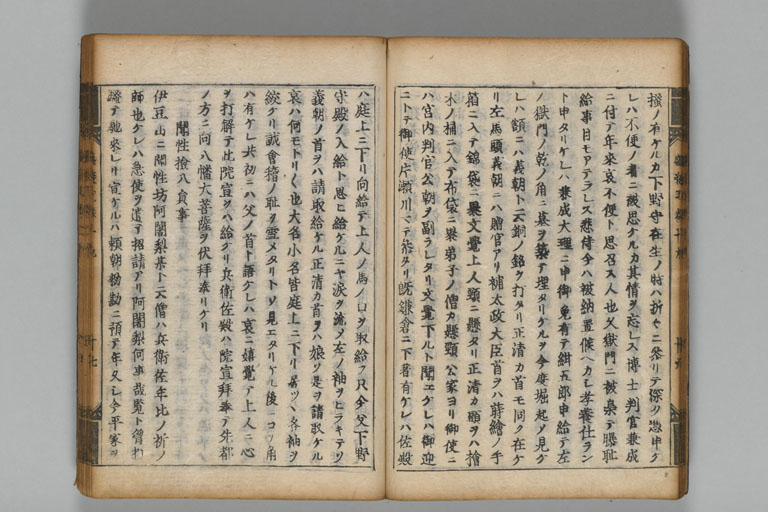 撥ノ有ケルカ下野守在生ノ時ハ折々ニ参リテ深ク憑申ケ
レハ不便ノ者ニ被思ケルカ其情ヲ忘レス博士判官兼成
ニ付テ年来哀不便ト思召ス人也父獄門ニ被梟テ曝耻
給事目モアテラレス悲侍今ハ被納置候ヘカシ孝養仕ラン
ト申タリケレハ兼成大理ニ申御免有テ紺五郎申給テ左
ノ獄門ノ乾ノ角ニ墓ヲ築テ埋タリケルヲ今度堀起ソ見ケ
レハ額ニハ義朝ト云銅ノ銘ヲ打タリ正清カ首モ同ク在ケ
リ左馬頭義朝ニハ贈官アリ補太政大臣首ヲハ蒔絵ノ手
箱ニ入テ錦袋ニ裹文覺上人頸ニ懸タリ正清カ頭ヲハ檜
木ノ桶ニ入テ布袋ニ裹弟子ノ僧カ懸頸公家ヨリ御使ニ
ハ宮内判官公朝ヲ副ラレタリ文覺下ルト聞エケレハ御迎
ニトテ御使片瀬川マテ参タリ既鎌倉ニ下著有ケレハ佐殿
ハ庭上ニ下リ向給テ上人ノ馬ノ口ヲ取給フ只今父下野
守殿ノ入給ト思ヒ給ケルニヤ涙ヲ流メ左ノ袖ヲヒラキテソ
義朝ノ首ヲハ請取給ケル正清カ首ヲハ娘ソ是ヲ請取ケル
哀ハ何モトリ〱也大名小名皆庭上ニ下リ居ツヽ各袖ヲ
絞ケリ誠會稽ノ耻ヲ雪メタリトソ見エタリケル後ニコソ角
ハ有ケレ共初ニハ父ノ首ト語ケレハ哀ニ嬉覺テ上人ニ心
ヲ打解テ此院宣ヲハ給ケリ兵衛佐殿ハ院宣拜奉テ先都
ノ方ニ向八幡大菩薩ヲ伏拜奉リケリ
聞性撿八員事
伊豆山ニ聞性坊阿闍梨某ト云僧ハ兵衛佐年比ノ祈ノ
師也ケレハ急使ヲ遣テ招請アリ阿闍梨何事哉覧ト曾打
崎テ馳来レリ宣ケルハ頼朝勅勘ニ預テ年久シ今平家ヲ